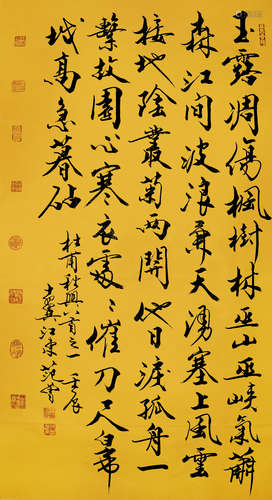 玉露凋傷楓樹林巫山巫峽氣蕭
森江間波浪兼天湧塞上風雲
接地陰叢菊兩開他日淚孤舟一
繫故園心寒衣處〻催刀尺白帝
城高急暮砧
杜甫秋興八首之一 壬辰
十翼江東范曾